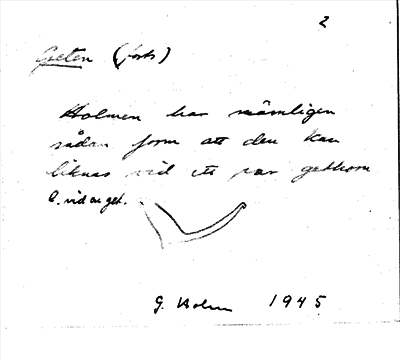 2
Geten (forts)
Holmen har nämligen
sådan form att den kan
liknas vid ett par gethorn
l. vid en get.
G. Holm 1945